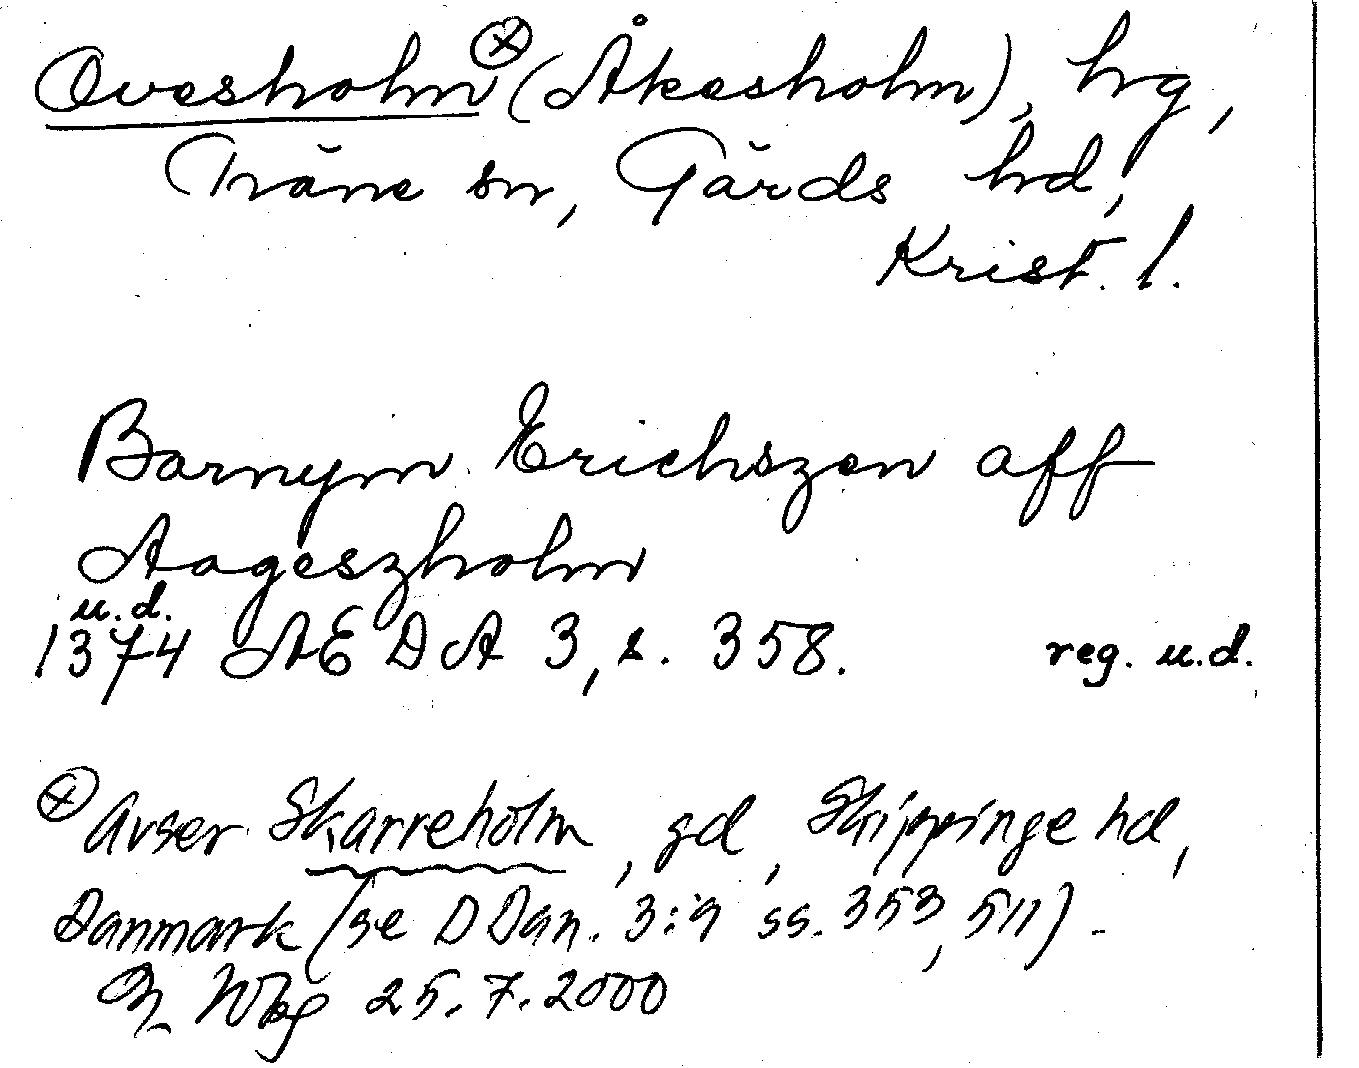 Ovesholm ⊗ (Åkesholm), hg,
Träne sn, Gärds hd,
Krist. l.
Barnym Erichszen aff
Aageszholm
u.d.
1374 AEDA 3, s. 358. reg. u.d.
⊗ Avser Skarreholm, gd, Skippinge hd,
Danmark (se DDan. 3:9 ss. 353, 511).
25.7.2000